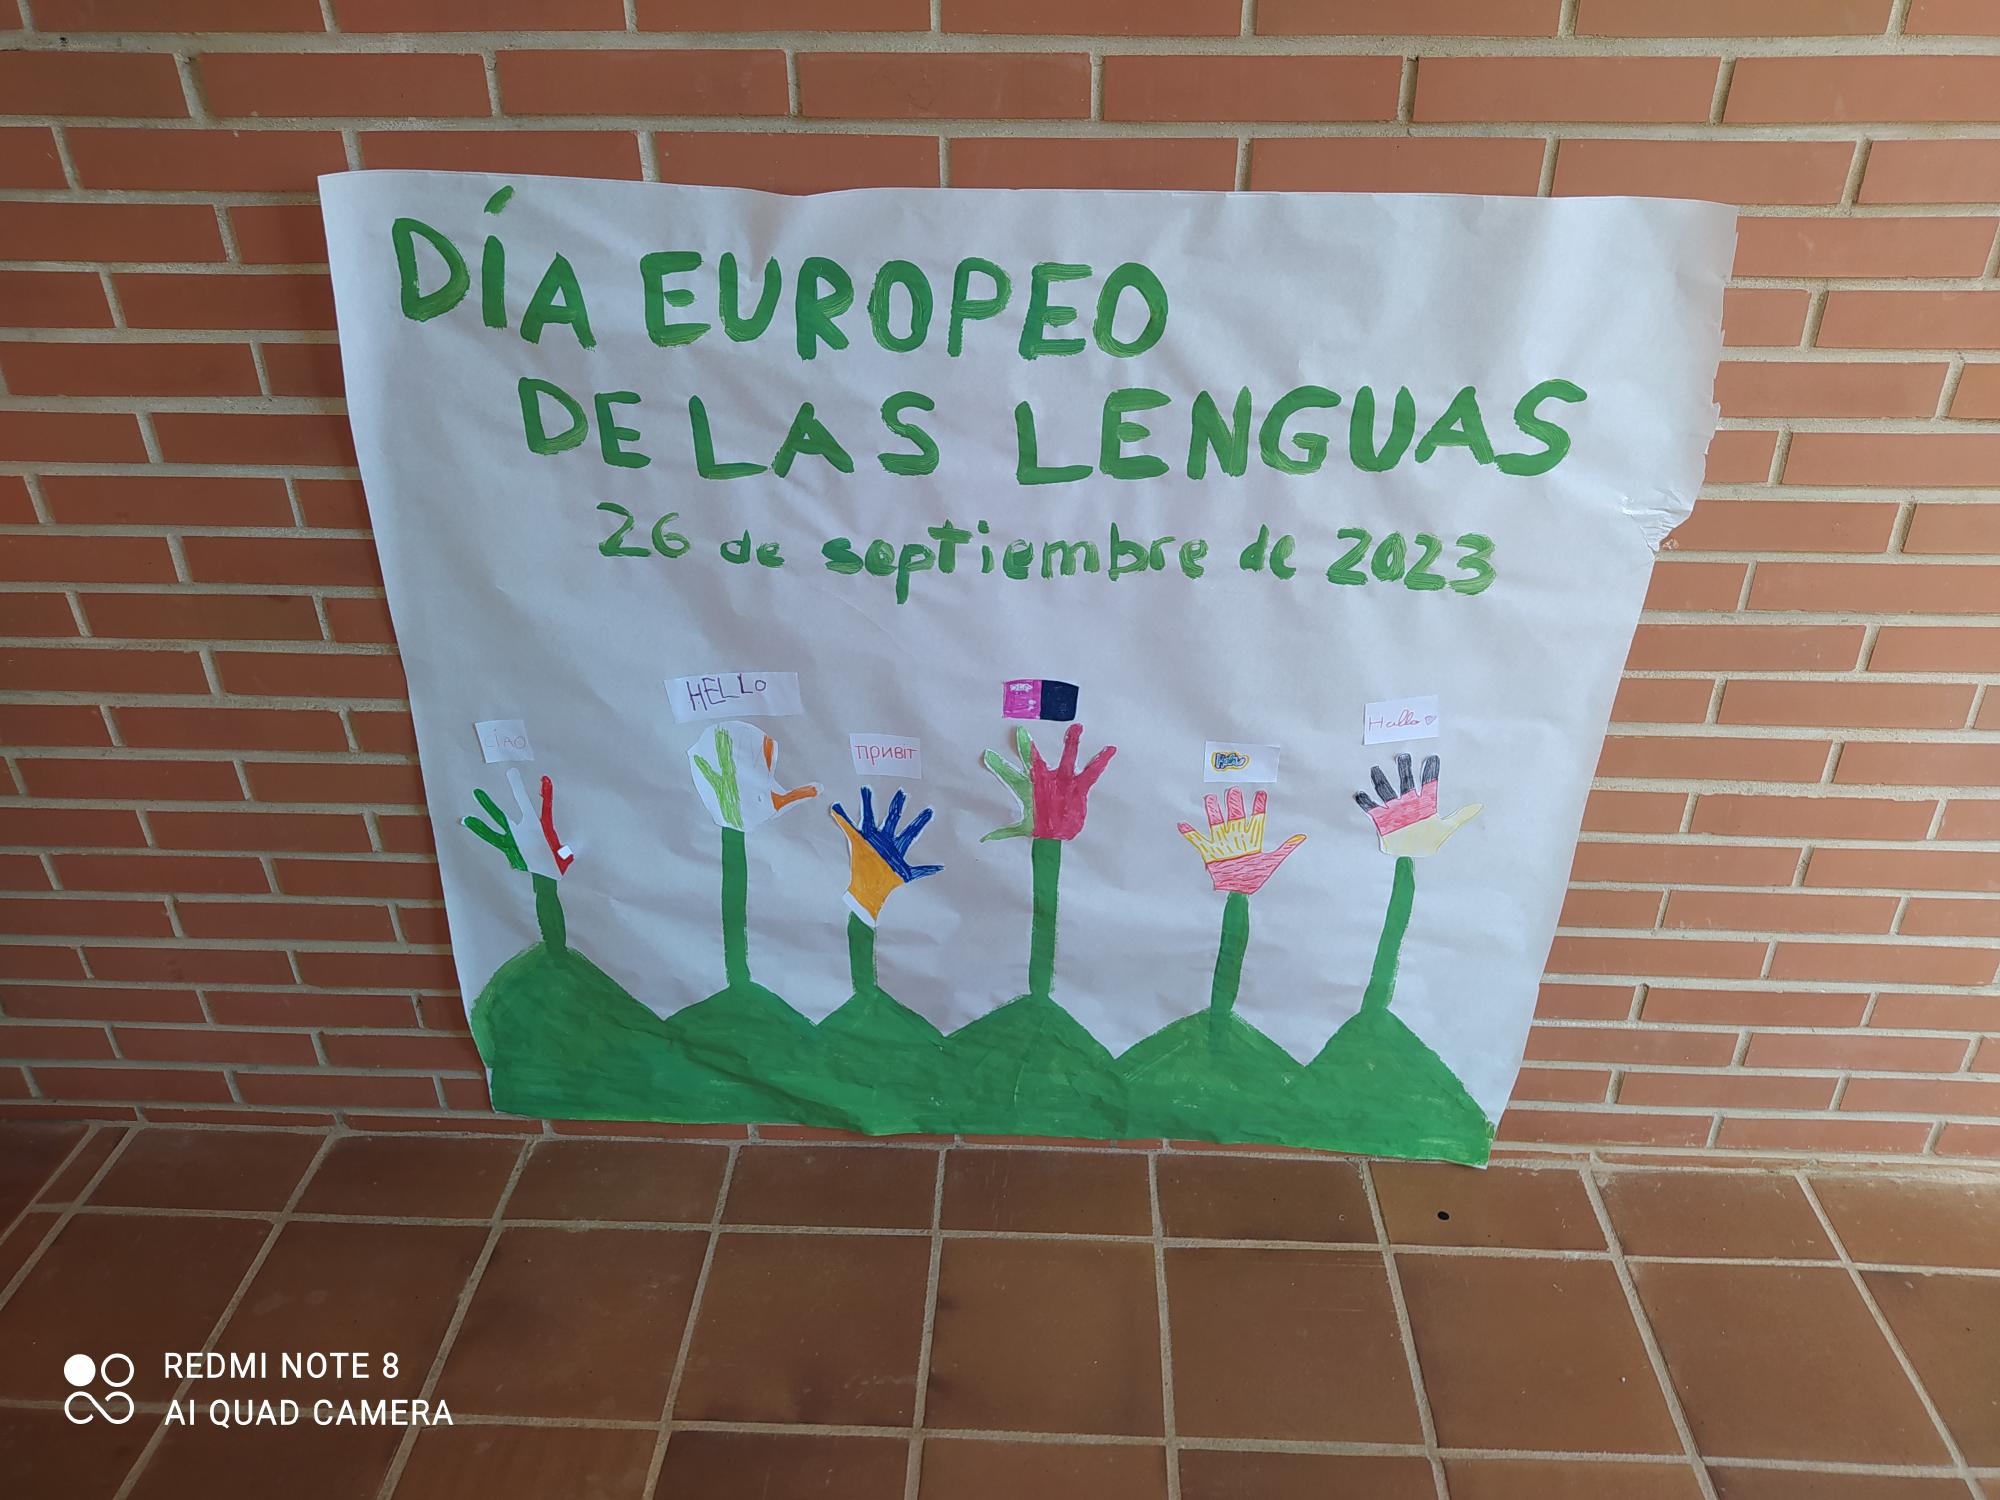 DÍA EUROPEO
DE LAS LENGUAS
26 de septiembre de 2023
CIAO
HELLO
Привіт
Hallo
REDMI NOTE 8
AI QUAD CAMERA